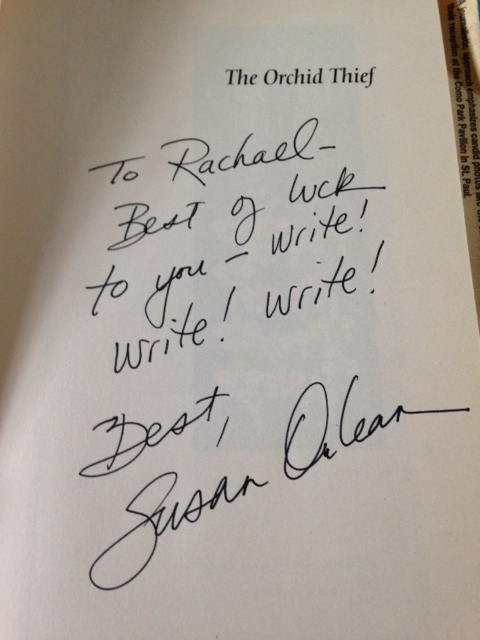 The Orchid Thief
To Rachael-
Best of luck
to you - write!
write! write!
Best,
Susan Orlean
approach emphasizes candid photos
reception at the Como Park Pavilion in St. Paul.